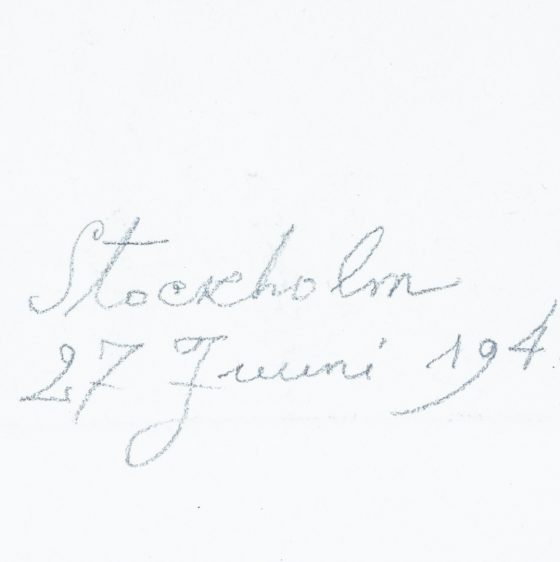 Stockholm
27 Juuni 194